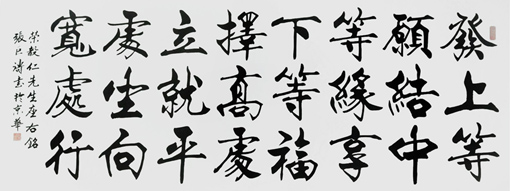 發上等
願結中
等緣享
下等福
擇高處
立就平
處坐向
寬處行
榮毅仁先生座右銘
張 書於京華